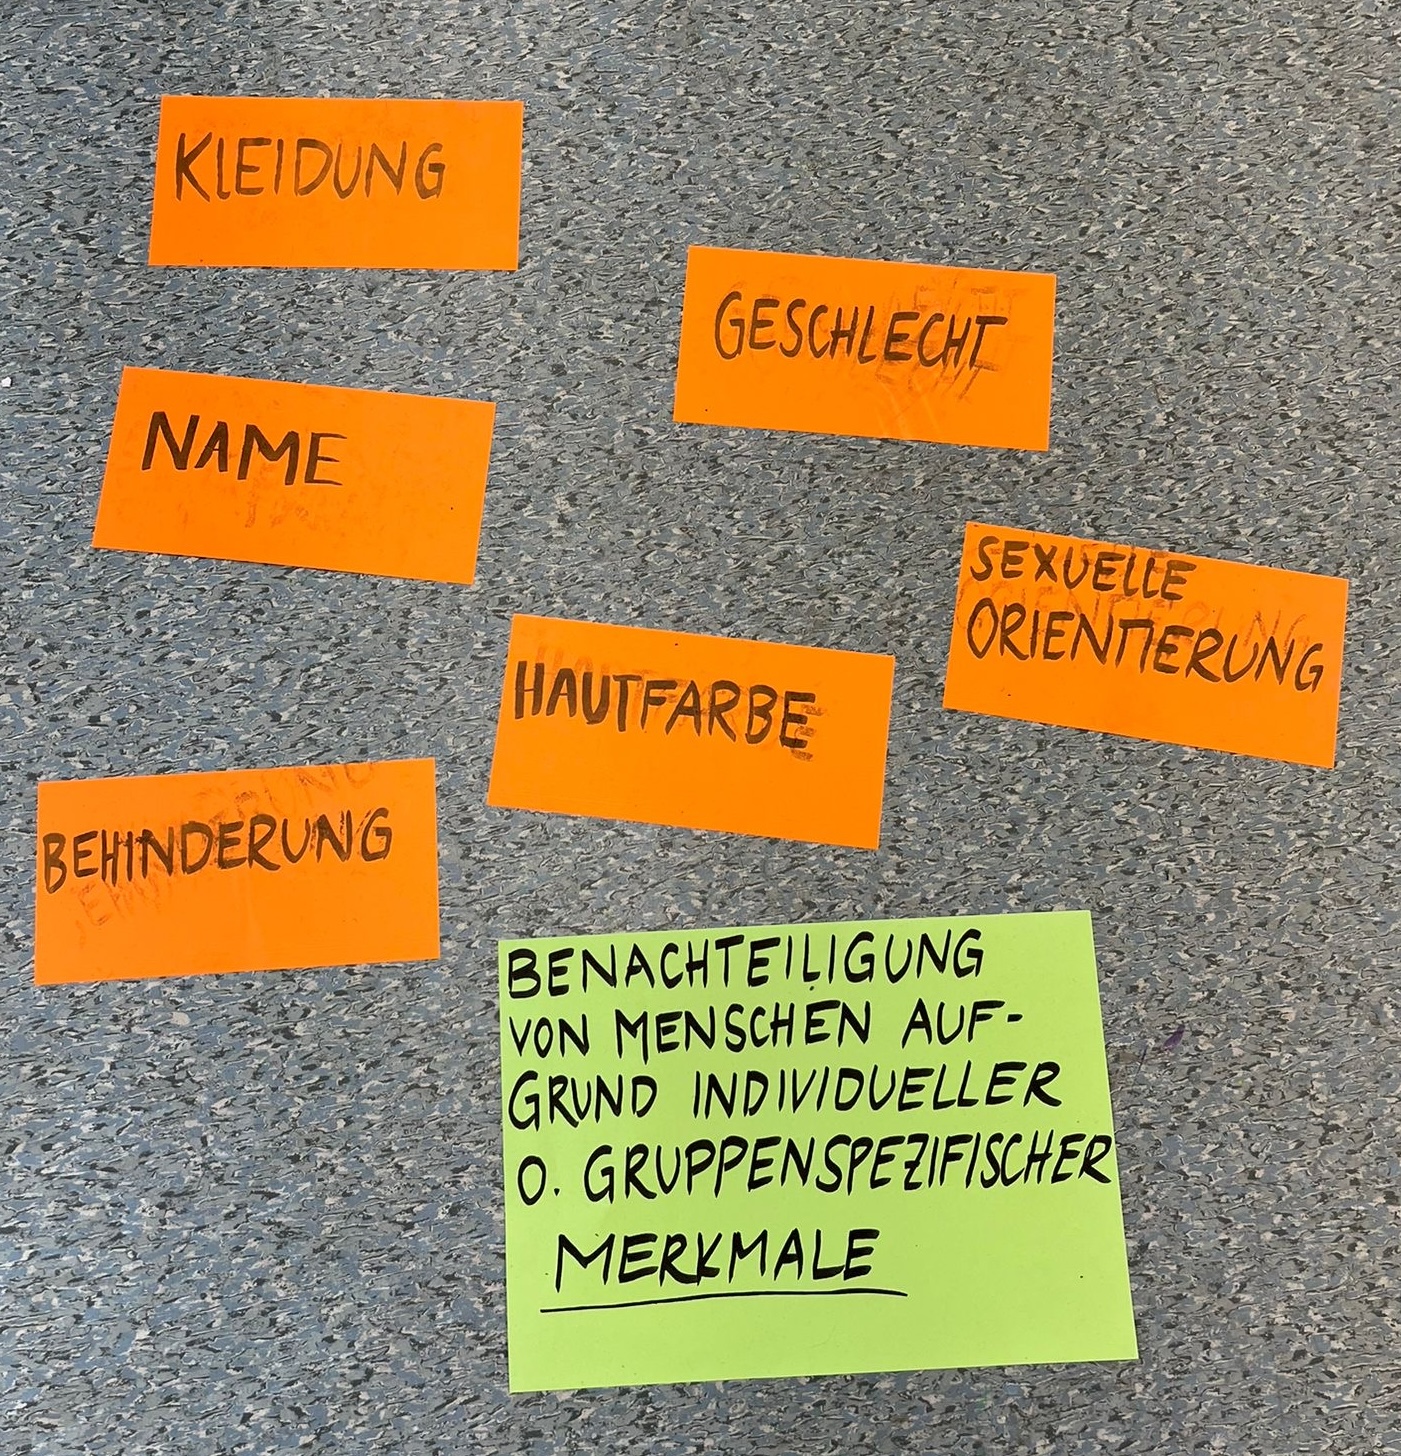 KLEIDUNG
GESCHLECHT
NAME
SEXUELLE
ORIENTIERUNG
HAUTFARBE
BEHINDERUNG
BENACHTEILIGUNG
VON MENSCHEN AUF-
GRUND INDIVIDUELLER
O. GRUPPENSPEZIFISCHER
MERKMALE